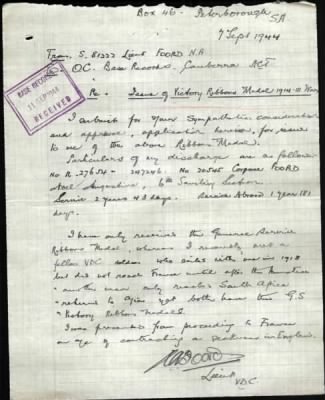 Box 46 - Peterborough
SA
7 Sept 1944
From S. 81222 Lieut FOORD N.A
To O.C. Base Records, Canberra ACT
BASE RECORDS
11 SEP 1944
RECEIVED
Re Issue of Victory Ribbons Medal 1914-18 War
I submit for your Sympathetic consideration
and approval, application hereon, for issue
to me of the above Ribbon & Medal.
Particulars of my discharge are as follows
Corporal FOORD
6th Sanitary Section
Service 2 years 43 days. Service Abroad 1 year 181
days.
I have only received the General Service
Ribbon & Medal, whereas I recently met a
fellow VDC who sailed with me in 1918
but did not reach France until after the Armistice
another man only reached South Africa
& returned to yet both have the G.S
& Victory Ribbons & Medals.
I was prevented from proceeding to France
on a/c of contracting a in England.
Lieut
VDC